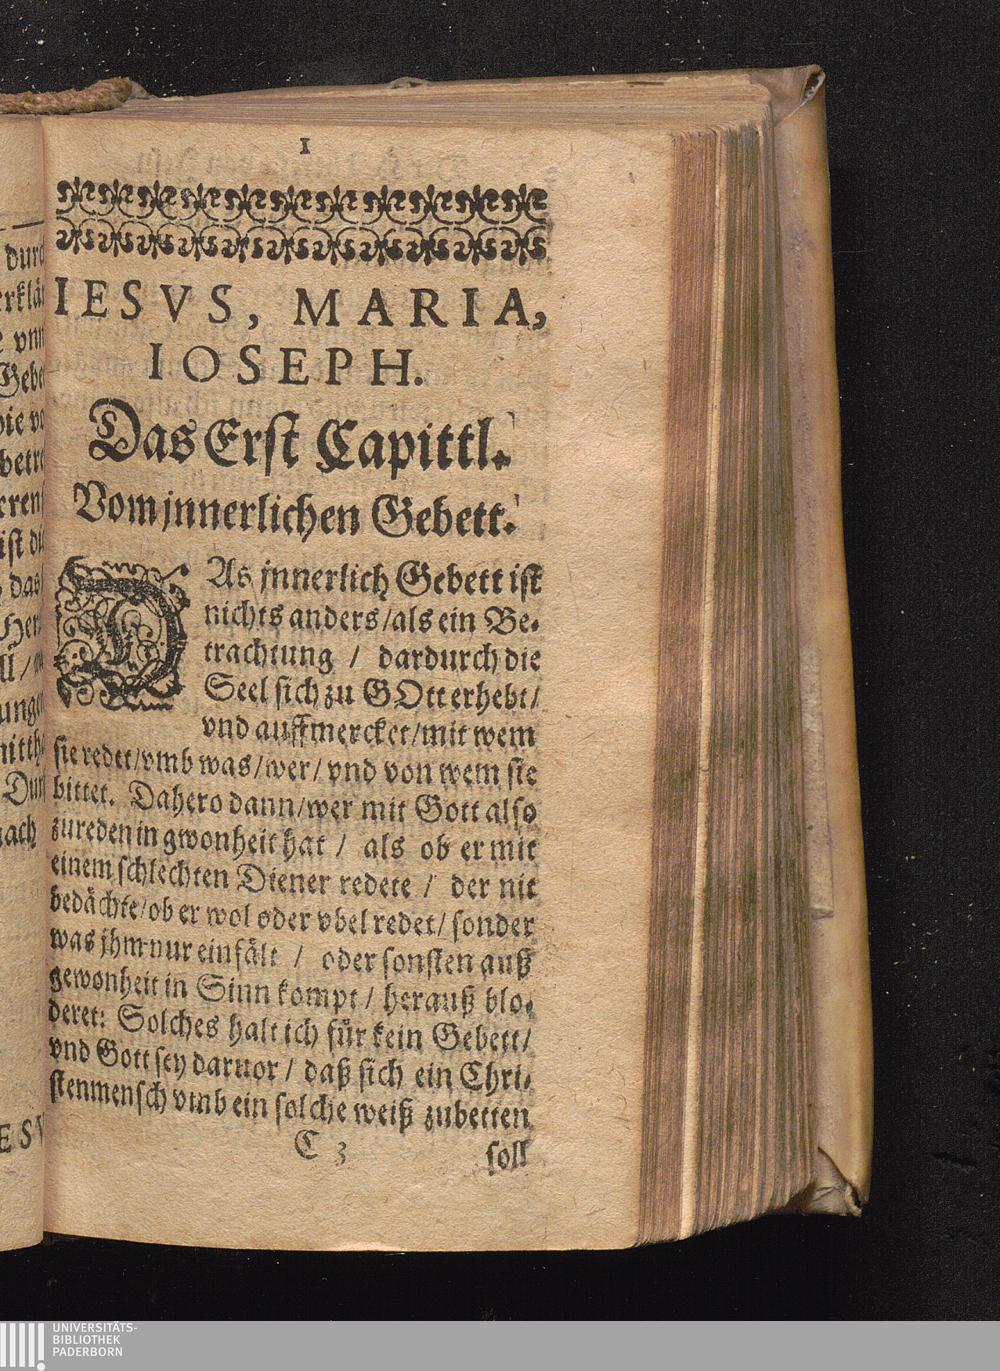 1
IESVS, MARIA,
IOSEPH.
Das Erst Capittl.
Vom jnnerlichen Gebett.
DAs jnnerlich Gebett ist
nichts anders / als ein Be-
trachtung / dardurch die
Seel sich zu GOtt erhebt /
vnd auffmercket / mit wem
sie redet / vmb was / wer / vnd von wem sie
bittet. Dahero dann / wer mit Gott also
zureden in gwonheit hat / als ob er mit
einem schlechten Diener redete / der nit
bedächte / ob er wol oder vbel redet / sonder
was jhm nur einfält / oder sonsten auß
gewonheit in Sinn kompt / herauß blo-
deret: Solches halt ich für kein Gebett /
vnd Gott sey daruor / daß sich ein Chri-
stenmensch vmb ein solche weiß zubetten
C 3 soll
UNIVERSITÄTS-
BIBLIOTHEK
PADERBORN